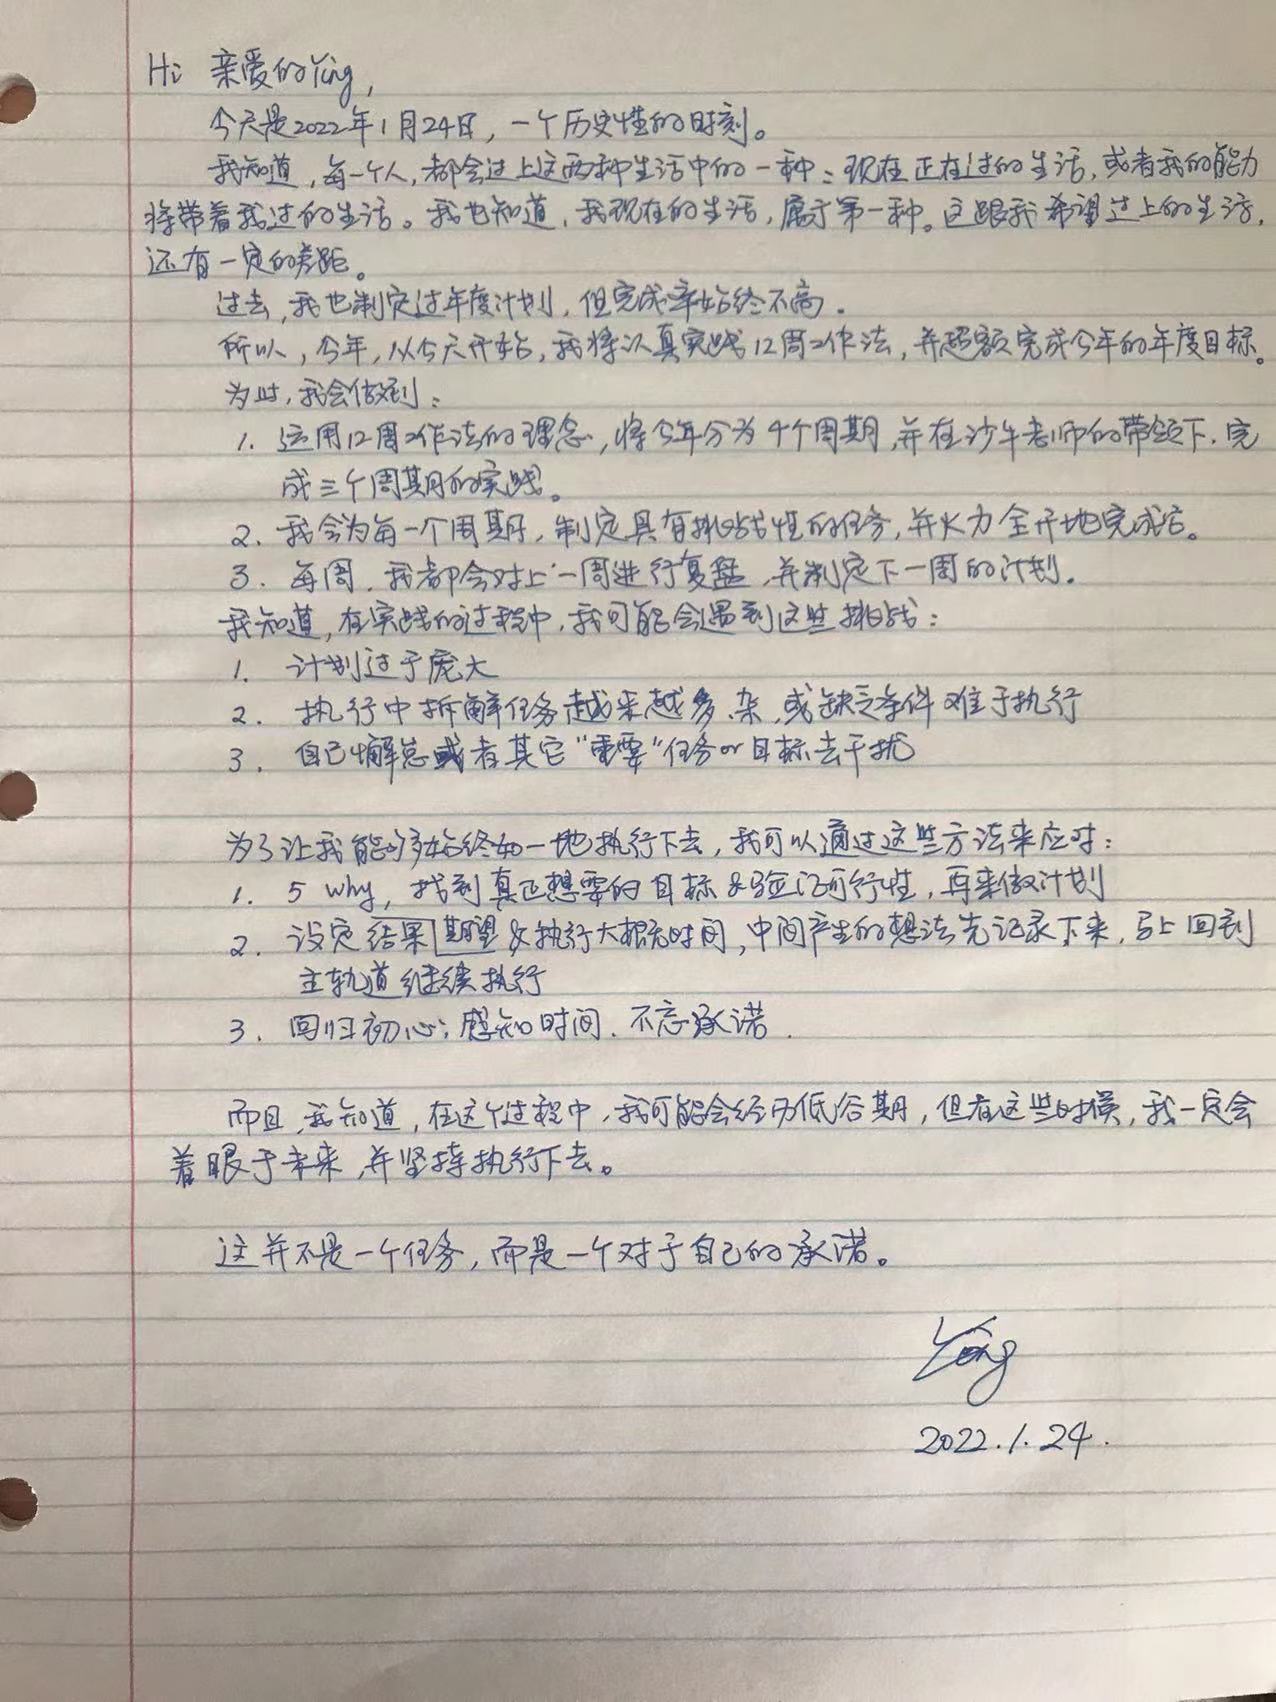 Hi 亲爱的Ying,
今天是2022年1月24日，一个历史性的时刻。
我知道，每一个人，都会过上这两种生活中的一种：现在正在过的生活，或者我的能力
将带着我过的生活。我也知道，我现在的生活，属于第一种。这跟我希望过上的生活，
还有一定的差距。
过去，我也制定过年度计划，但完成率始终不高。
所以，今年，从今天开始，我将认真实践12周工作法，并超额完成今年的年度目标。
为此，我会做到：
1. 运用12周工作法的理念，将今年分为4个周期，并在沙牛老师的带领下，完
成三个周期的实践。
2. 我会为每一个周期，制定具有挑战性的任务，并火力全开地完成它。
3. 每周，我都会对上一周进行复盘，并制定下一周的计划。
我知道，在实践的过程中，我可能会遇到这些挑战：
1. 计划过于庞大
2. 执行中拆解任务越来越多、杂，或缺乏条件难于执行
3. 自己懈怠或者其它“重要”任务or目标去干扰
为了让我能够始终如一地执行下去，我可以通过这些方法来应对：
1. 5 why，找到真正想要的目标&验证可行性，再来做计划
2. 设定结果期望&执行大概时间，中间产生的想法先记录下来，马上回到
主轨道继续执行
3. 回归初心：感知时间、不忘承诺.
而且，我知道，在这个过程中，我可能会经历低谷期，但在这些时候，我一定会
着眼于未来，并坚持执行下去。
这并不是一个任务，而是一个对于自己的承诺。
Ying
2022.1.24.